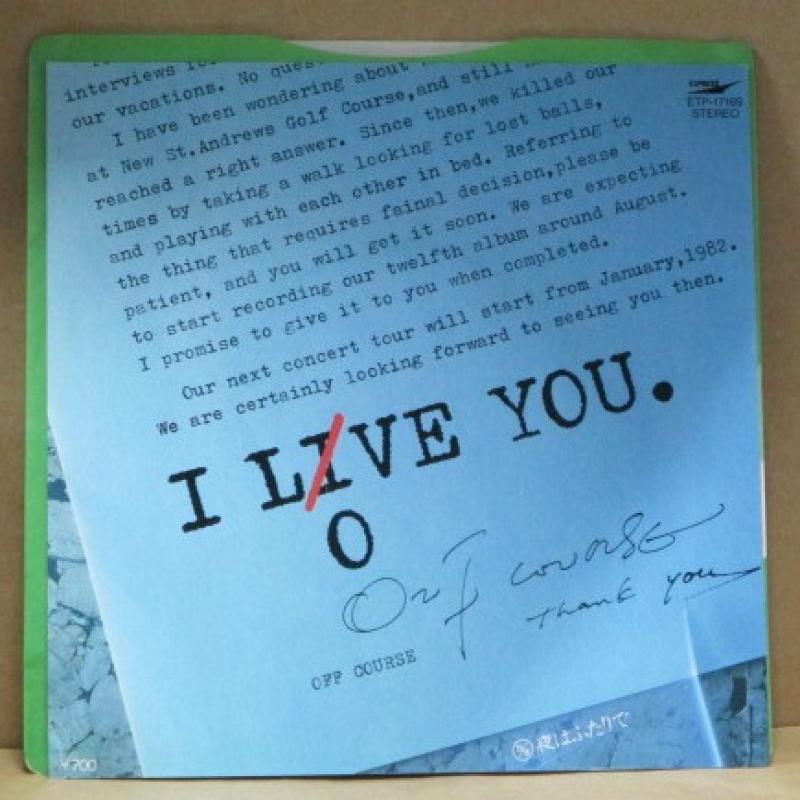 interviews
our vacations. No
I have been wondering about
at New St.Andrews Golf Course,and still
reached a right answer. Since then,we killed our
times by taking a walk looking for lost balls,
and playing with each other in bed. Referring to
the thing that requires fainal decision,please be
patient, and you will get it soon. We are expecting
to start recording our twelfth album around August.
I promise to give it to you when completed.
Our next concert tour will start from January,1982.
We are certainly looking forward to seeing you then.
I LIVE YOU.
O
Off course
Thank you
OFF COURSE
夜はふたりで
¥700
EXPRESS
ETP-17169
STEREO